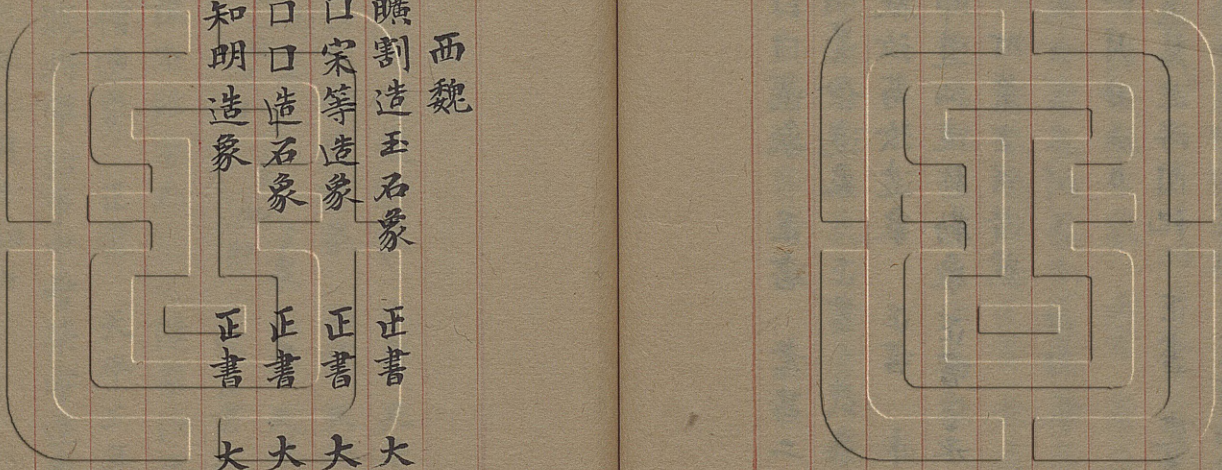 西魏
曠割造玉石象 正書 大
口宗等造象 正書 大
口口造石象 正書 大
知明造象 正書 大